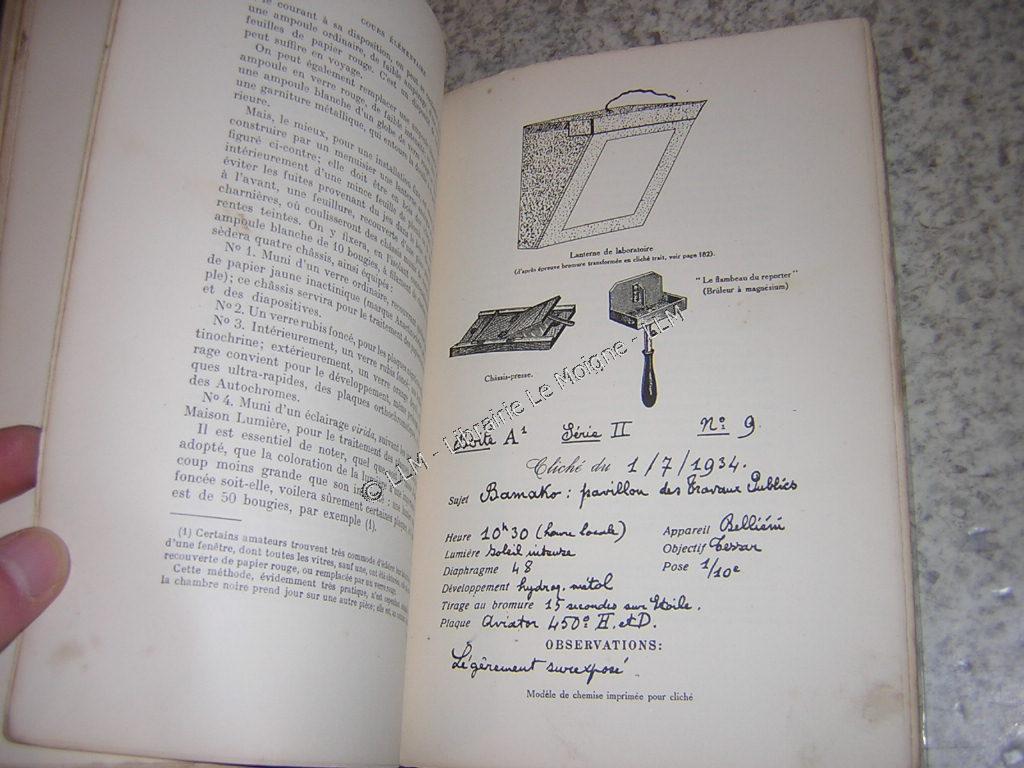 COURS ÉLÉMENTAIRE
le courant à sa disposition, on peut
une ampoule ordinaire, de faible
feuilles de papier rouge. C'est un
peut suffire en voyage.
On peut également remplacer
ampoule en verre rouge, de faible
une ampoule blanche d'un globe de verre
une garniture métallique, qui entoure
rieure.
Mais, le mieux, pour une installation
construire par un menuisier une
figuré ci-contre; elle doit être en
intérieurement d'une mince feuille de
éviter les fuites provenant du jeu de
à l'avant, une feuillure, recouverte d'un
charnières, où coulisseront des châssis
rentes teintes. On y fixera, en l'isolant
ampoule blanche de 10 bougies, à filament
sèdera quatre châssis, ainsi équipés :
N° 1. Muni d'un verre ordinaire, recouvert
de papier jaune inactinique (marque
ple); ce châssis servira pour le traitement
et des diapositives.
N° 2. Un verre rubis foncé, pour les plaques
N° 3. Intérieurement, un verre rubis foncé
tinochrine; extérieurement, un verre
rage convient pour le développement, même
ques ultra-rapides, des plaques
des Autochromes.
N° 4. Muni d'un éclairage virida, suivant
Maison Lumière, pour le traitement des
Il est essentiel de noter, quel que
adopté, que la coloration de la lumière
coup moins grande que son : une
foncée soit-elle, voilera sûrement certaines plaques
est de 50 bougies, par exemple (1).
(1) Certains amateurs trouvent très commode d'éclairer
d'une fenêtre, dont toutes les vitres, sauf une, ont été
recouverte de papier rouge, ou remplacée par un verre rouge.
Cette méthode, évidemment très pratique, n'est
la chambre noire prend jour sur une autre pièce; elle est, au
Lanterne de laboratoire
(d'après épreuve bromure transformée en cliché trait, voir page 182).
" Le flambeau du reporter "
(Brûleur à magnésium)
Châssis-presse.
Boîte A¹ Série II N° 9
Cliché du 1/7/1934.
Sujet Bamako : pavillon des Travaux Publics
Heure 10h30 (heure locale) Appareil Belliéni
Lumière soleil intense Objectif Tessar
Diaphragme 48 Pose 1/10e
Développement hydroq. métol
Tirage au bromure 15 secondes sur Etoile.
Plaque Aviator 450° H. et D.
OBSERVATIONS:
Légèrement surexposé
Modèle de chemise imprimée pour cliché
© LLM - Librairie Le Moigne - LLM